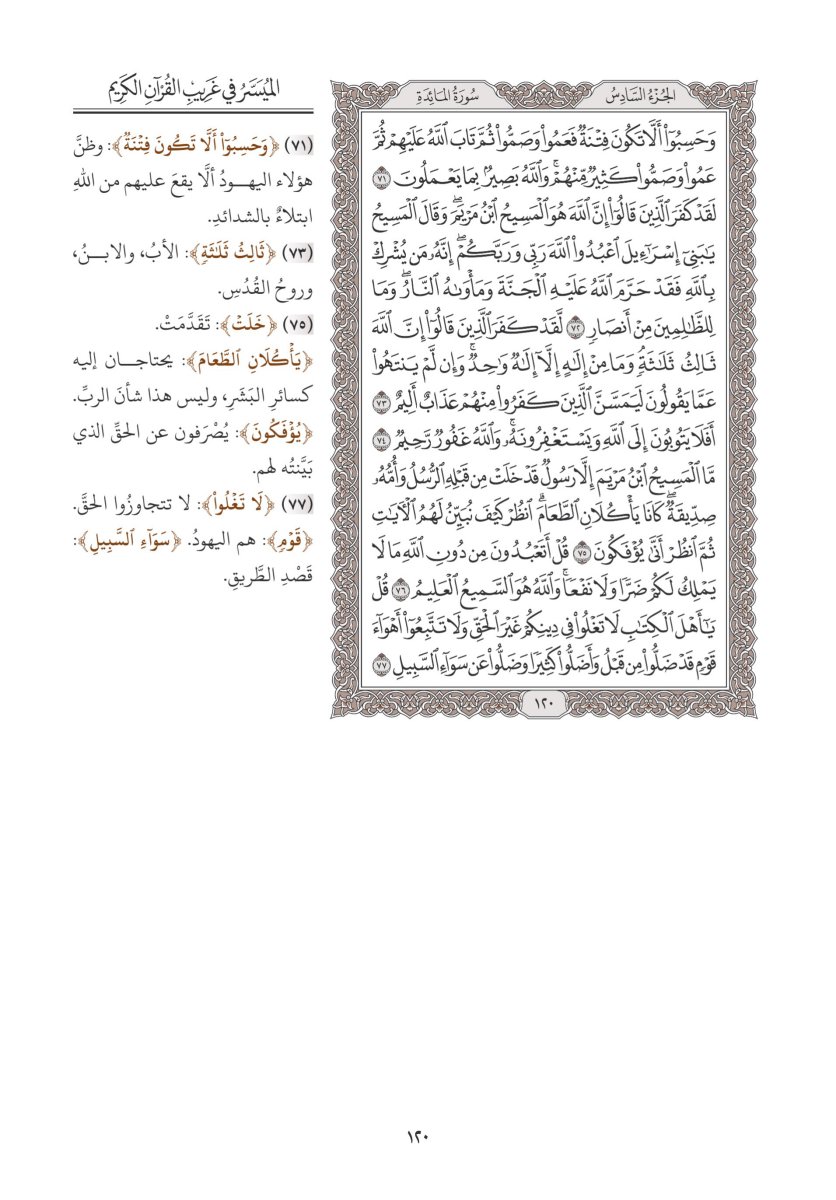 الجُزْءُ السَّادِسُ
سُورَةُ المَائِدَةِ
وَحَسِبُوٓاْ أَلَّا تَكُونَ فِتْنَةٞ فَعَمُواْ وَصَمُّواْ ثُمَّ تَابَ ٱللَّهُ عَلَيۡهِمۡ ثُمَّ
عَمُواْ وَصَمُّواْ كَثِيرٞ مِّنۡهُمۡۚ وَٱللَّهُ بَصِيرُۢ بِمَا يَعۡمَلُونَ ٧١
لَقَدۡ كَفَرَ ٱلَّذِينَ قَالُوٓاْ إِنَّ ٱللَّهَ هُوَ ٱلۡمَسِيحُ ٱبۡنُ مَرۡيَمَۖ وَقَالَ ٱلۡمَسِيحُ
يَٰبَنِيٓ إِسۡرَٰٓءِيلَ ٱعۡبُدُواْ ٱللَّهَ رَبِّي وَرَبَّكُمۡۖ إِنَّهُۥ مَن يُشۡرِكۡ
بِٱللَّهِ فَقَدۡ حَرَّمَ ٱللَّهُ عَلَيۡهِ ٱلۡجَنَّةَ وَمَأۡوَىٰهُ ٱلنَّارُۖ وَمَا
لِلظَّٰلِمِينَ مِنۡ أَنصَارٖ ٧٢ لَّقَدۡ كَفَرَ ٱلَّذِينَ قَالُوٓاْ إِنَّ ٱللَّهَ
ثَالِثُ ثَلَٰثَةٖۘ وَمَا مِنۡ إِلَٰهٍ إِلَّآ إِلَٰهٞ وَٰحِدٞۚ وَإِن لَّمۡ يَنتَهُواْ
عَمَّا يَقُولُونَ لَيَمَسَّنَّ ٱلَّذِينَ كَفَرُواْ مِنۡهُمۡ عَذَابٌ أَلِيمٌ ٧٣
أَفَلَا يَتُوبُونَ إِلَى ٱللَّهِ وَيَسۡتَغۡفِرُونَهُۥۚ وَٱللَّهُ غَفُورٞ رَّحِيمٞ ٧٤
مَّا ٱلۡمَسِيحُ ٱبۡنُ مَرۡيَمَ إِلَّا رَسُولٞ قَدۡ خَلَتۡ مِن قَبۡلِهِ ٱلرُّسُلُ وَأُمُّهُۥ
صِدِّيقَةٞۖ كَانَا يَأۡكُلَانِ ٱلطَّعَامَۗ ٱنظُرۡ كَيۡفَ نُبَيِّنُ لَهُمُ ٱلۡأٓيَٰتِ
ثُمَّ ٱنظُرۡ أَنَّىٰ يُؤۡفَكُونَ ٧٥ قُلۡ أَتَعۡبُدُونَ مِن دُونِ ٱللَّهِ مَا لَا
يَمۡلِكُ لَكُمۡ ضَرّٗا وَلَا نَفۡعٗاۚ وَٱللَّهُ هُوَ ٱلسَّمِيعُ ٱلۡعَلِيمُ ٧٦ قُلۡ
يَٰٓأَهۡلَ ٱلۡكِتَٰبِ لَا تَغۡلُواْ فِي دِينِكُمۡ غَيۡرَ ٱلۡحَقِّ وَلَا تَتَّبِعُوٓاْ أَهۡوَآءَ
قَوۡمٖ قَدۡ ضَلُّواْ مِن قَبۡلُ وَأَضَلُّواْ كَثِيرٗا وَضَلُّواْ عَن سَوَآءِ ٱلسَّبِيلِ ٧٧
١٢٠
المُيَسَّرُ في غَرِيبِ القُرْآنِ الكَرِيمِ
(٧١) ﴿وَحَسِبُوٓاْ أَلَّا تَكُونَ فِتۡنَةٞ﴾: وظنَّ
هؤلاء اليهودُ ألَّا يقعَ عليهم من اللهِ
ابتلاءٌ بالشدائدِ.
(٧٣) ﴿ثَالِثُ ثَلَٰثَةٖ﴾: الأبُ، والابنُ،
وروحُ القُدُسِ.
(٧٥) ﴿خَلَتۡ﴾: تَقَدَّمَتْ.
﴿يَأۡكُلَانِ ٱلطَّعَامَ﴾: يحتاجان إليه
كسائرِ البَشَرِ، وليس هذا شأنَ الربِّ.
﴿يُؤۡفَكُونَ﴾: يُصْرَفون عن الحقِّ الذي
بَيَّنْتُه لهم.
(٧٧) ﴿لَا تَغۡلُواْ﴾: لا تتجاوزُوا الحقَّ.
﴿قَوۡمٖ﴾: هم اليهودُ. ﴿سَوَآءِ ٱلسَّبِيلِ﴾:
قَصْدِ الطَّريقِ.
١٢٠